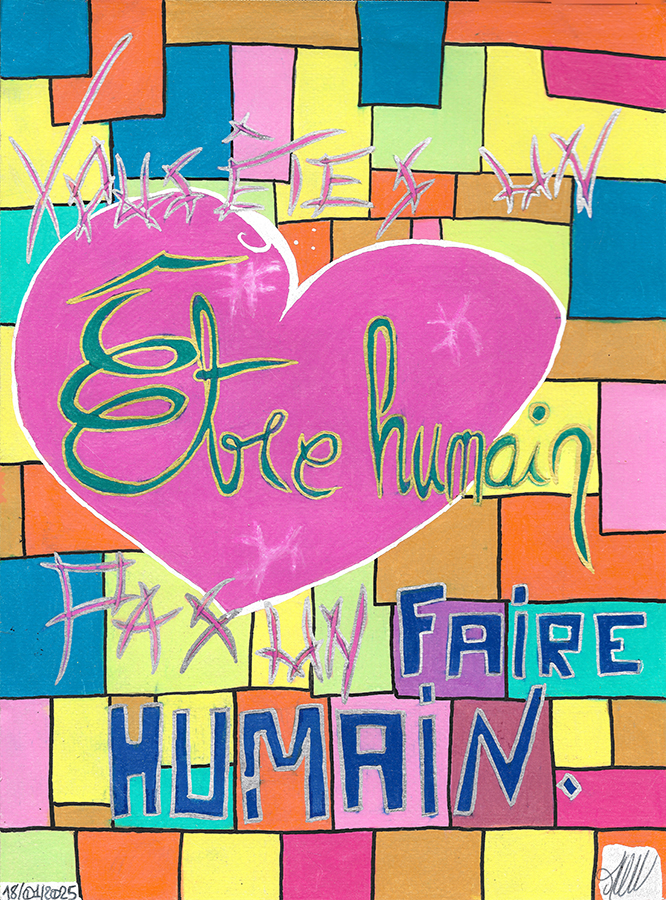 VOUS ÊTES UN
Être humain
PAS UN FAIRE
HUMAIN.
18/01/2025